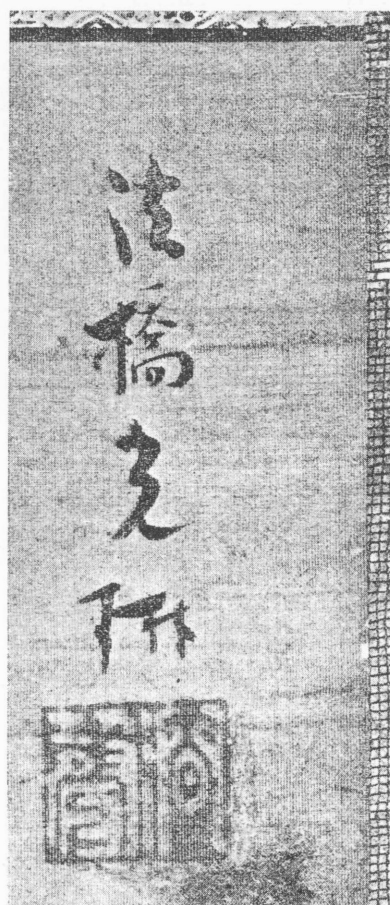 法橋光琳